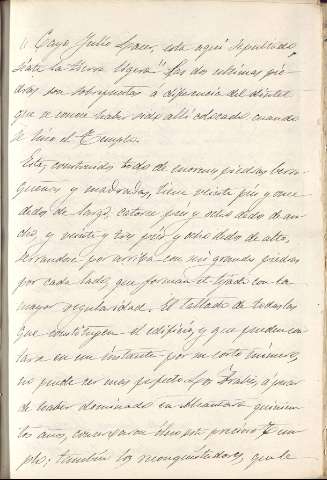 "Cayo Julio Lacer, está aquí sepultado,
séate la tierra ligera" Las dos últimas pie-
dras son sobrepuestas a diferencia del dintel
que se conoce haber sido allí colocado cuando
se hizo el Templo.
Este, construido todo de enormes piedras berro-
queñas y maderadas, tiene veinte piés y once
dedos de largo, catorce piés y ocho dedos de an-
cho, y veinte y tres piés y ocho dedos de alto,
cerrandose por arriba con seis grandes piedras
por cada lado, que forman el tejado con la
mayor regularidad. El tallado de todas las
que constituyen el edificio, y que pueden con-
tarse en un instante por su corto número,
no puede ser mas perfecto. Los Arabes, á pesar
de haber dominado en Alcantara quinien-
tos años, conservaron este precioso Tem-
plo; tambien los reconquistadores, que le